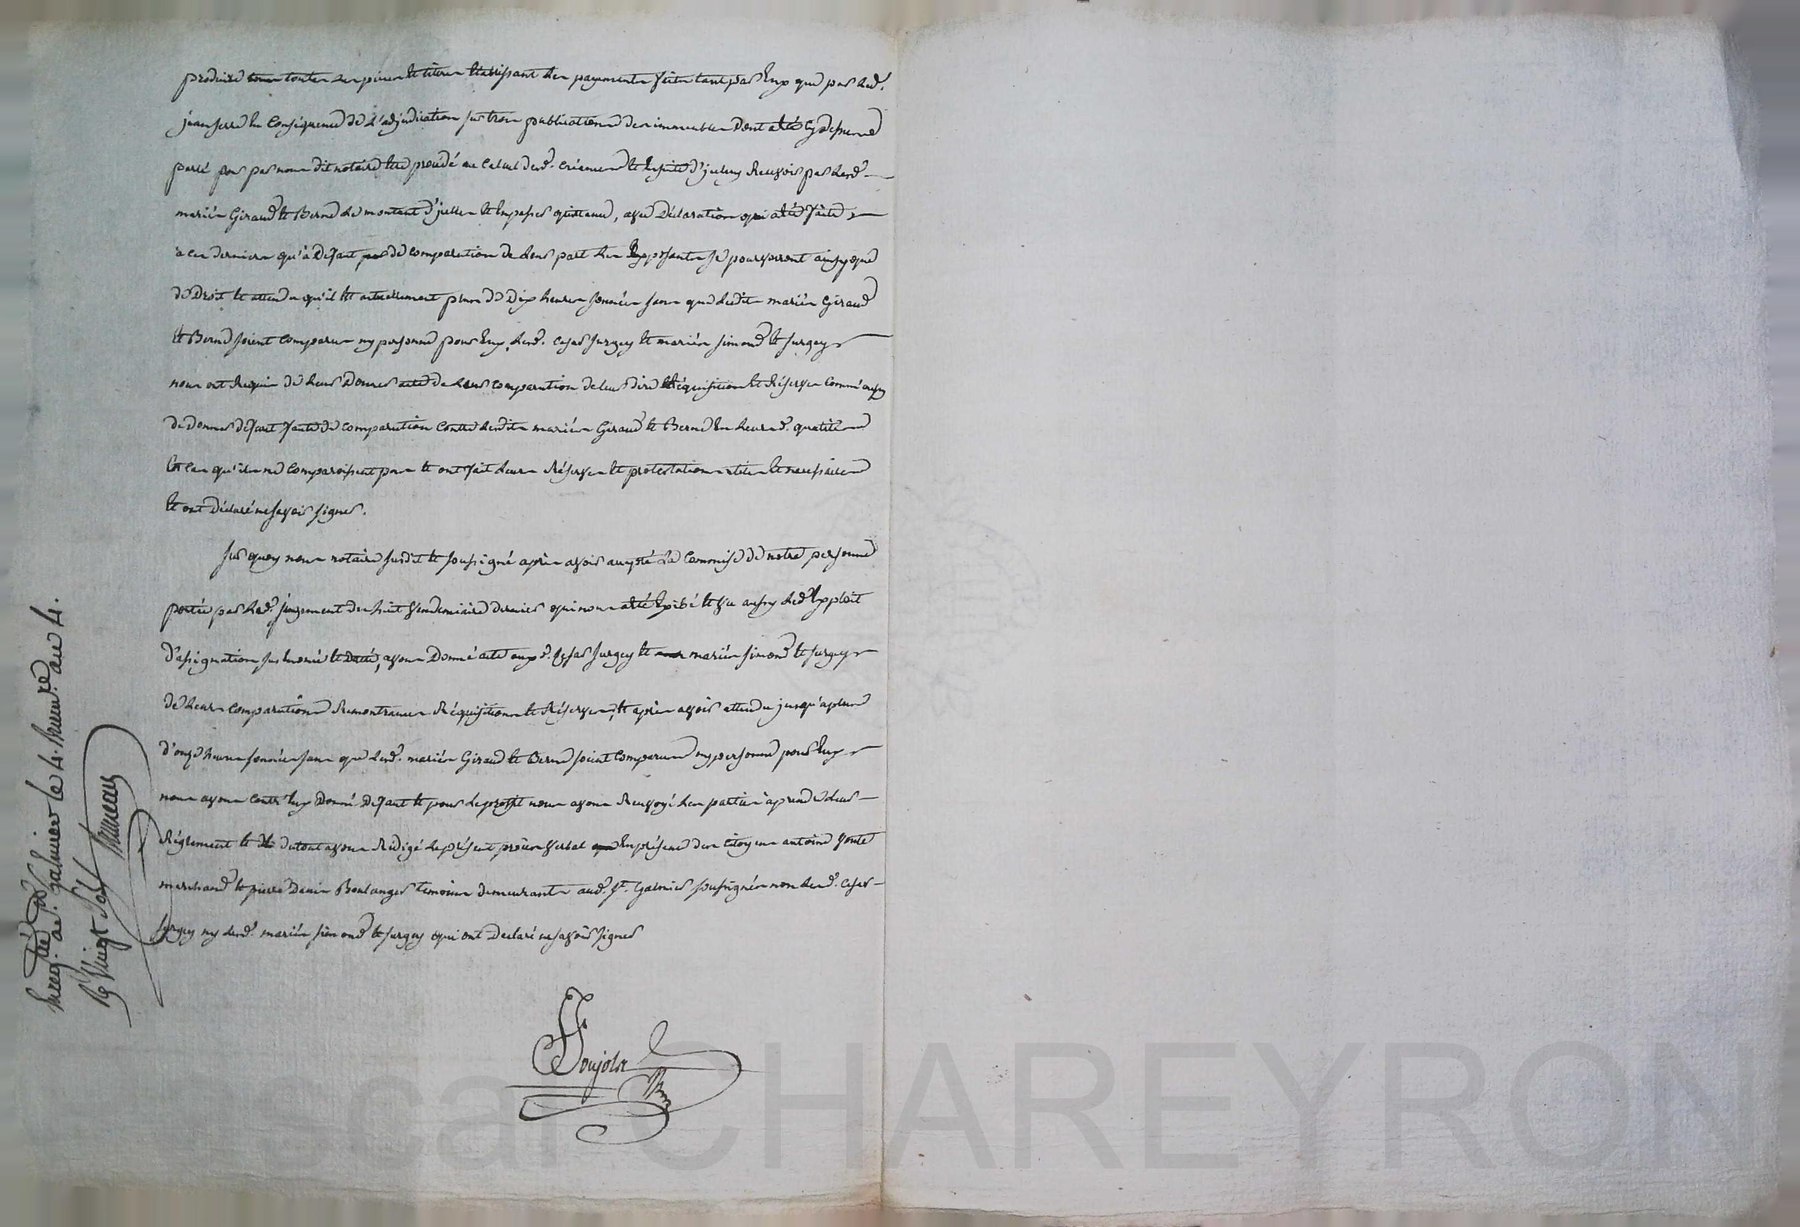 produire toutes les pieces et titres Etablissant les payements faits tant par Eux que par led.
jean serre En Consequence de L'adjudication sur trois publications des immeubles Dont a été Cy dessus
parlé pour par nous dit notaire Etre procédé au Calcul desd. Créances et Ensuite d'iceluy Recevoir par lesd.
mariés Giraud et Berne Le montant d'jcelles et En passer quittance, avec Déclaration qui a été faite
a ces derniers qu'à Defaut de comparution de Leur part Les Exposants se pourvoiront ainsy que
de Droit Et attendu qu'il Est actuellement plus de Dix heures sonnées sans que Lesdits mariés Giraud
et Berne soient Comparus ny personne pour Eux, Lesd. Cesar surgey et mariés simond et surgey
nous ont Requis de Leur Donner acte de Leur Comparution de leur dire Réquisition et Réserves Comme aussy
de Donner defaut faute de comparution Contre Lesdits mariés Giraud et Berne En Leursd. qualités
En Cas qu'ils ne Comparoissent pas et ont fait Leurs Réserves et protestations utiles et necessaires
Et ont Déclaré ne savoir signer.
Sur quoy nous notaire susdit et soussigné après avoir accepté La Commise de notre personne
portée par Led. jugement du huit Vendemiaire dernier qui nous a été Exibé et Vu aussy Led. Exploit
d'assignation sus Enoncé et Daté, avons Donné acte auxd. Cesar surgey et mariés simond et surgey
de Leurs Comparutions Remontrances Réquisitions et Réserves, et après avoir attendu jusqu'a plus
d'onze heures sonnées sans que Lesd. mariés Giraud et Berne soient Comparus ny personne pour Eux
nous avons Contr'Eux Donné Defaut et pour Le profit nous avons Renvoyé Les parties à prendre Leur
Réglement et du tout avons Rédigé Le présent procès Verbal En présence des Citoyens antoine
marchand et pierre Denis Boulanger temoins demeurants aud. St. Galmier soussignés non Lesd. Cesar
surgey ny Lesd. mariés simond et surgey qui ont Declaré ne savoir signer
Soujols
Enreg. à St. galmier le 4. Brum.re an 4.
R Vingt Sols Bruneau
Oscar CHAREYRON